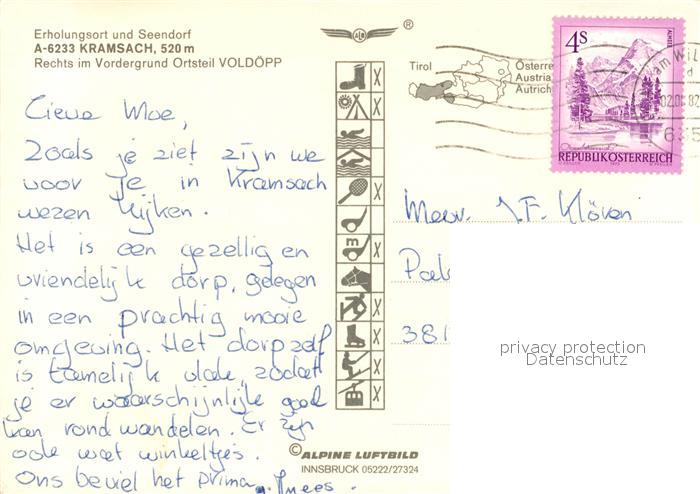 Erholungsort und Seendorf
A-6233 KRAMSACH, 520 m
Rechts im Vordergrund Ortsteil VOLDÖPP
Lieve Moe,
Zoals je ziet zijn we
voor je in Kramsach
wezen kijken.
Het is een gezellig en
vriendelijk dorp, gelegen
in een prachtig mooie
omgeving. Het dorp zelf
is tamelijk vlak, zodat
je er waarschijnlijk goed
kan rond wandelen. Er zijn
ook wat winkeltjes.
Ons beviel het prima.
ALF
®
X
X
X
m
X
X
X
X
©ALPINE LUFTBILD
INNSBRUCK 05222/27324
Tirol
Österre
Austria
Autrich
4S
ALMSEE
REPUBLIK ÖSTERREICH
am Wil
02.08.82
635
Mevr. J.F.
Pal
381
privacy protection
Datenschutz